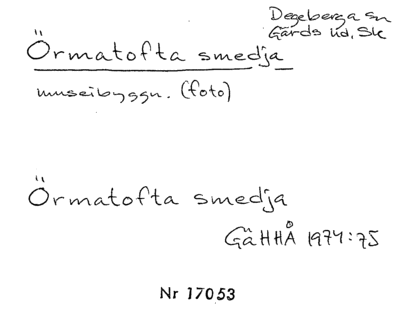 Degeberga sn
Gärds hd, Sk
Örmatofta smedja
museibyggn. (foto)
Örmatofta smedja
GäHHÅ 1974:75
Nr 17053